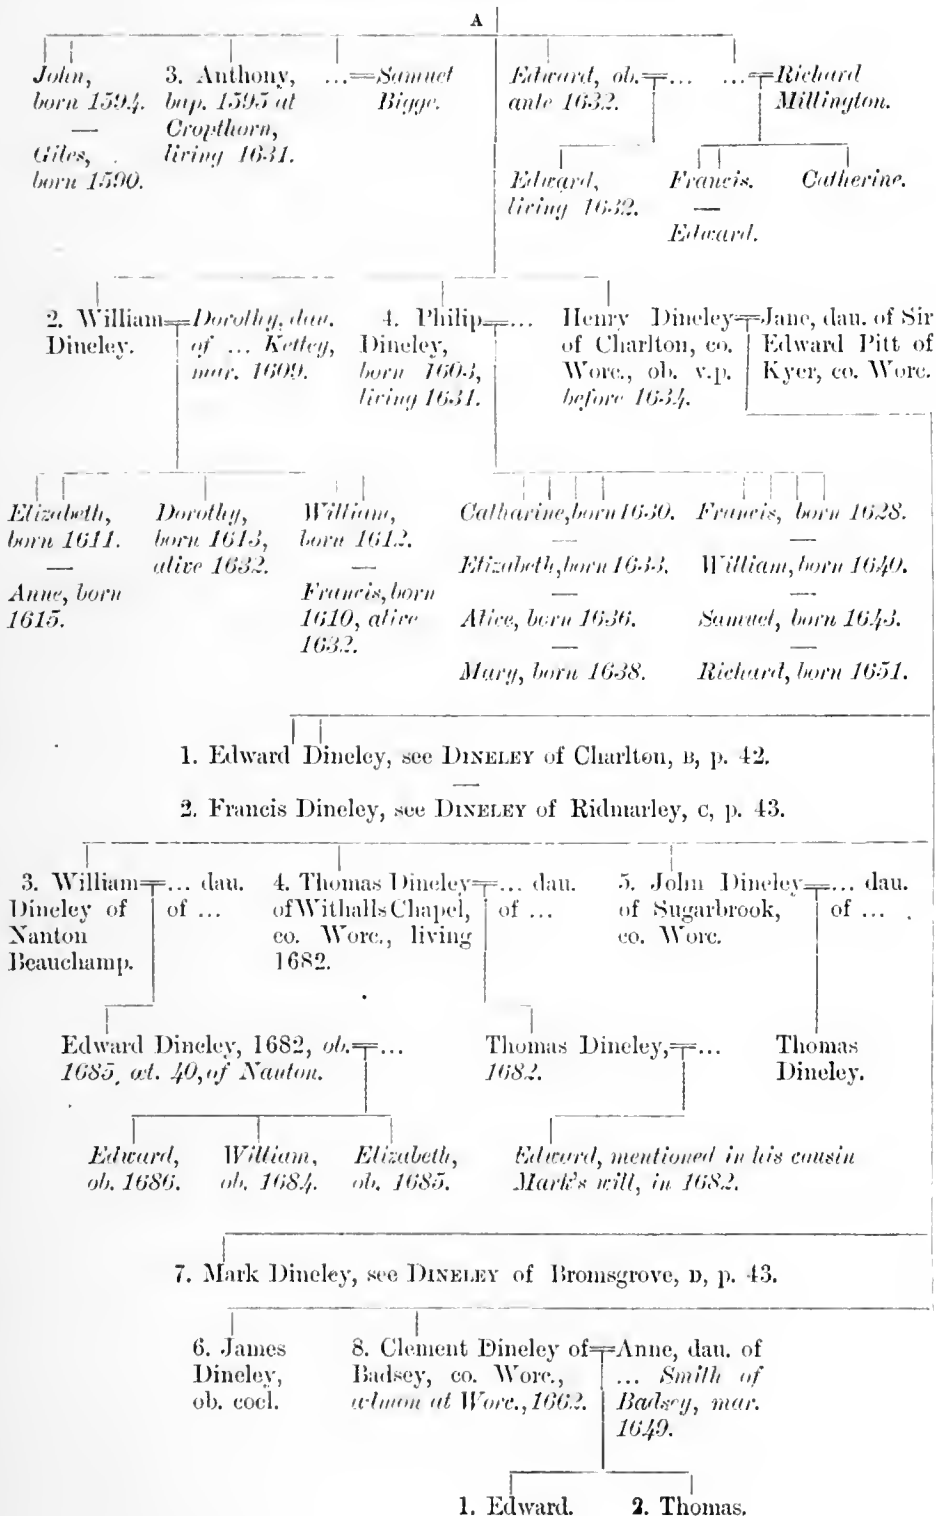 A
John,
born 1594.
—
Giles,
born 1590.
3. Anthony,
bap. 1595 at
Cropthorn,
living 1631.
...=Samuel
Bigge.
Edward, ob.=...
ante 1632.
...=Richard
Millington.
Edward,
living 1632.
Francis.
—
Edward.
Catherine.
2. William=Dorothy, dau.
Dineley. of ... Ketley,
mar. 1609.
4. Philip=...
Dineley,
born 1603,
living 1631.
Henry Dineley=Jane, dau. of Sir
of Charlton, co. Edward Pitt of
Worc., ob. v.p. Kyer, co. Worc.
before 1634.
Elizabeth,
born 1611.
—
Anne, born
1615.
Dorothy,
born 1613,
alive 1632.
William,
born 1612.
—
Francis, born
1610, alive
1632.
Catharine, born 1630.
—
Elizabeth, born 1633.
—
Alice, born 1636.
—
Mary, born 1638.
Francis, born 1628.
—
William, born 1640.
—
Samuel, born 1643.
—
Richard, born 1651.
1. Edward Dineley, see DINELEY of Charlton, B, p. 42.
—
2. Francis Dineley, see DINELEY of Ridmarley, C, p. 43.
3. William=... dau.
Dineley of of ...
Nanton
Beauchamp.
4. Thomas Dineley=... dau.
of Withalls Chapel, of ...
co. Worc., living
1682.
5. John Dineley=... dau.
of Sugarbrook, of ...
co. Worc.
Edward Dineley, 1682, ob.=...
1685, æt. 40, of Nauton.
Thomas Dineley,=...
1682.
Thomas
Dineley.
Edward,
ob. 1686.
William,
ob. 1684.
Elizabeth,
ob. 1685.
Edward, mentioned in his cousin
Mark's will, in 1682.
7. Mark Dineley, see DINELEY of Bromsgrove, D, p. 43.
6. James
Dineley,
ob. cœl.
8. Clement Dineley of=Anne, dau. of
Badsey, co. Worc., ... Smith of
a'lmon at Worc., 1662. Badsey, mar.
1649.
1. Edward.
2. Thomas.